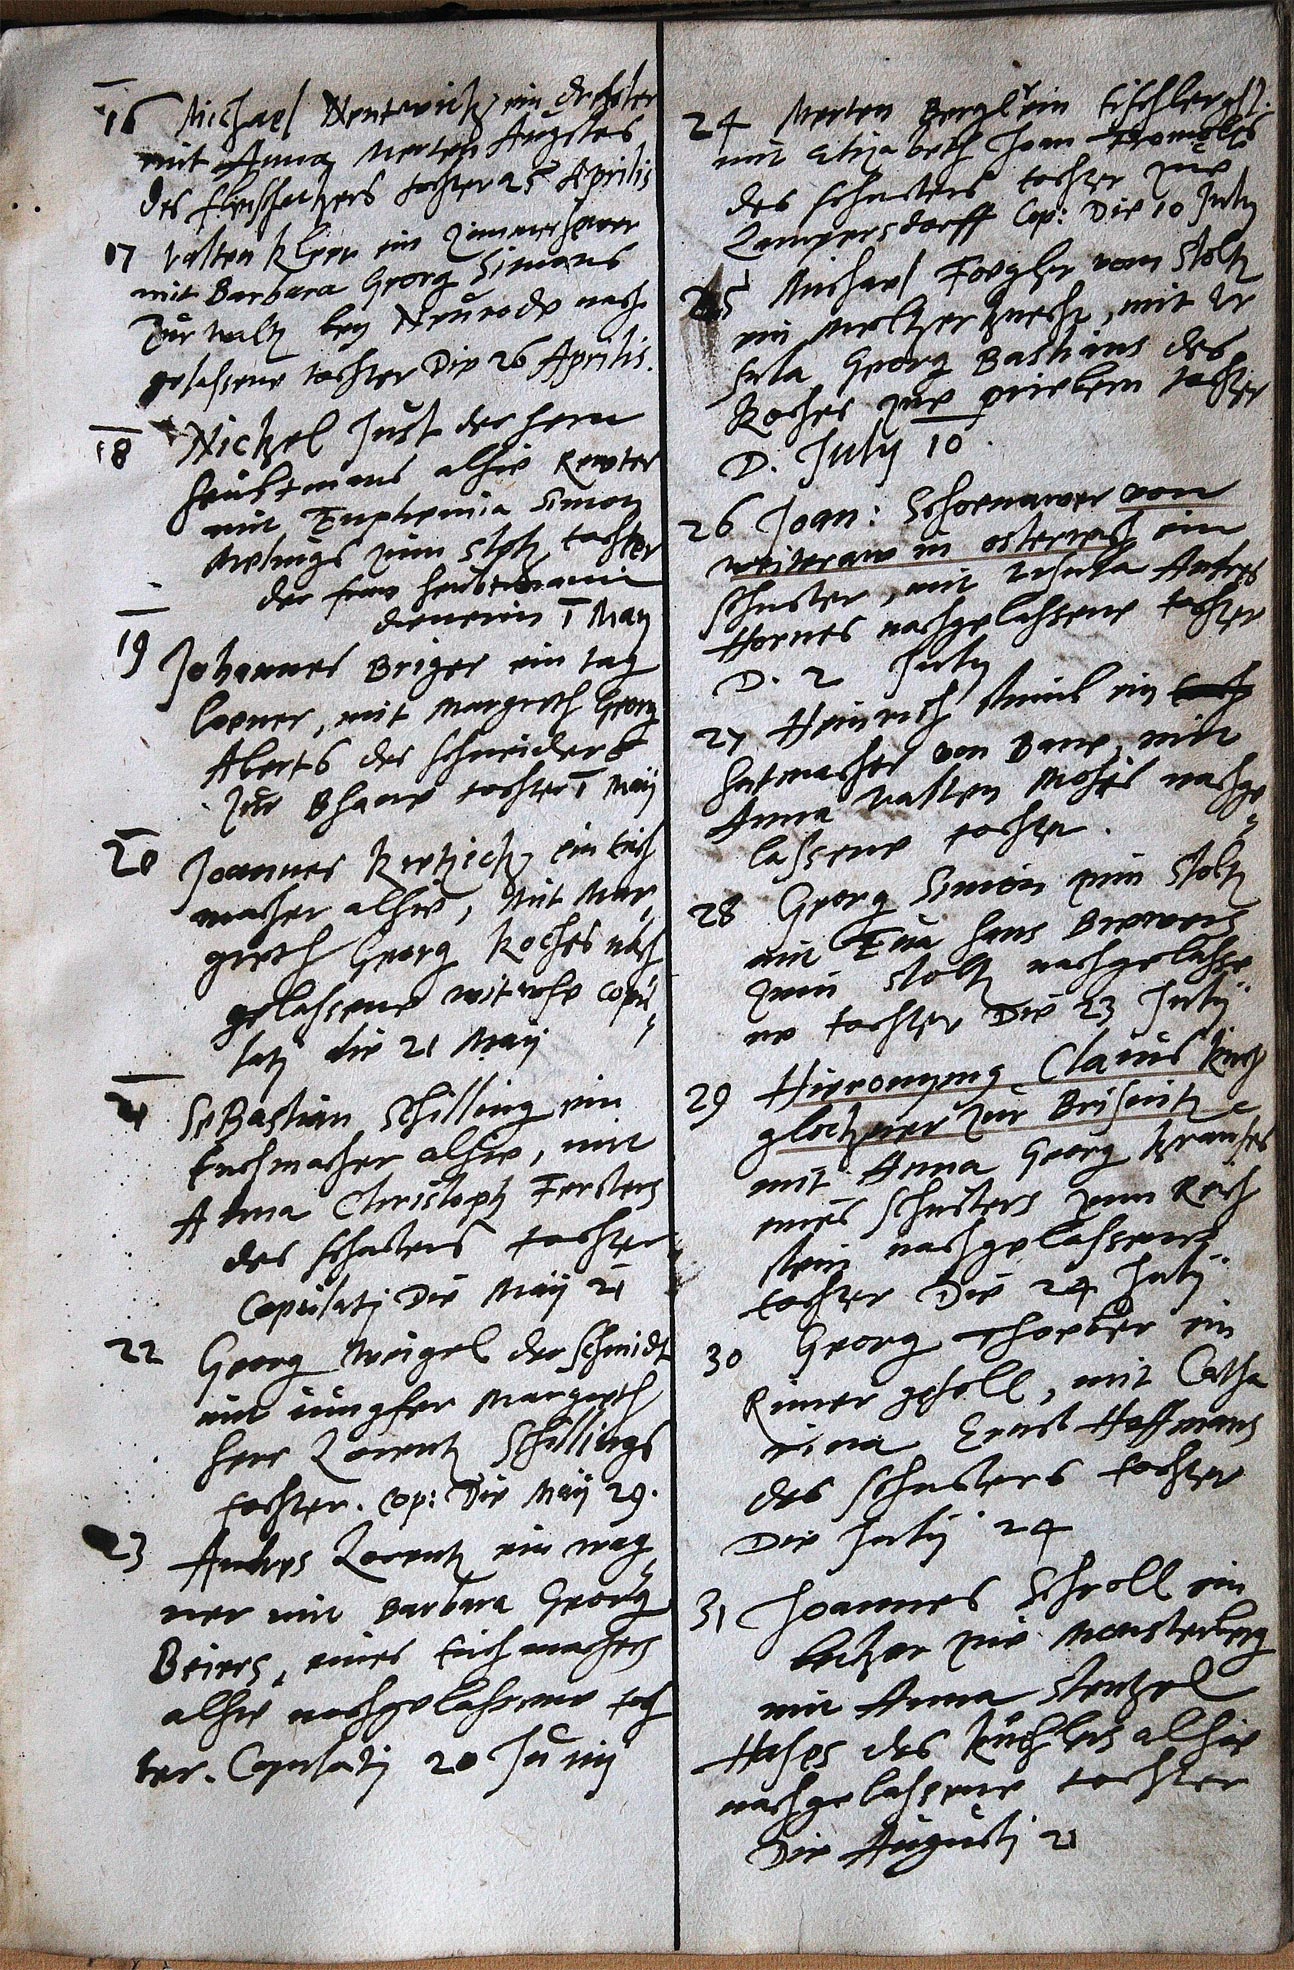 16 Michael Nentwich, ein drechsler
mit Anna Merten Augstes
des fleischackers tochter 25 Aprilis
17 Valten Kleer ein Zimmerhawer
mit Barbara Georg Simons
zur walz bey Neurode nach
gelassene tochter Die 26 Aprilis.
18 Nickel Just des hern
heubtmans alhie Reuter
mit Euphemia Simon
zum Stoltz tochter
der fraw heubtmanin
dienerin 1 May
19 Johannes Briger ein tag
loener, mit Margreth Georg
Alberts des schneiders
zue tochter 1 Maij
20 Joannes ein tuch
macher alhie, Mit Mar,
greth Georg Koches nach
gelassene witwhe copu
lati die 21 Maij
21 Sebastian Schilling ein
tuchmacher alhie, mit
Anna Christoph Fersters
des schusters tochter
Copulati Die Maij 21
22 Georg Weigel der schmidt
mit iungfer Margreth
herr Lorentz Schillings
tochter. Cop: Die Maij 29.
23 Andres Lorentz ein wag
ner mit Barbara Georg
Beiers, eines tuchmachers
alhie nachgelassene toch
ter. Copulati 20 Junij
24 Merten Bergl ein tischlergs.
mit Elizabeth Joan
des schusters tochter zue
Lampersdorff Cop: Die 10 July
25 Michael Foegler vom Stoltz
ein meltzer knecht, mit Ur
sula Georg Bastians des
Koches zue priebern tochter
D. July 10.
26 Joan: Schoenawer von
weiteraw in osterreich ein
schuster, mit Ursula Andres
Hornes nachgelassene tochter
D. 2 July
27 Heinrich ein
hutmacher von mit
Anna Valten nachge
lassene tochter.
28 Georg Simon zum Stoltz
mit Eua Hans
zum Stoltz nachgelasse
ne tochter Die 23 Julij
29 Hieronymus Claus kirch
glockner zur Brisnitz
mit Anna Georg Krauses
eines schusters zum Reich
stein nachgelassene
tochter Die 24 Julij.
30 Georg ein
Rimer gesell, mit Catha
rina Ernst Hoffmans
des schusters tochter
Die Julij 24
31 Joannes Schroll ein
zue Monsterberg
mit Anna Stentzel
des alhie
nachgelassene tochter
Die Augusti 21